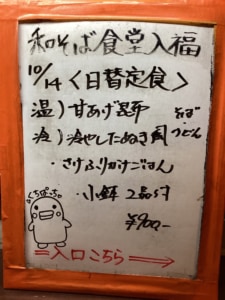 和そば食堂入福
10/14〈日替定食〉
温）甘あげ昆布 そば
冷）冷やしたぬき風 うどん
・さけふりかけごはん
・小鉢 2品付
¥900-
⇒入口こちら→